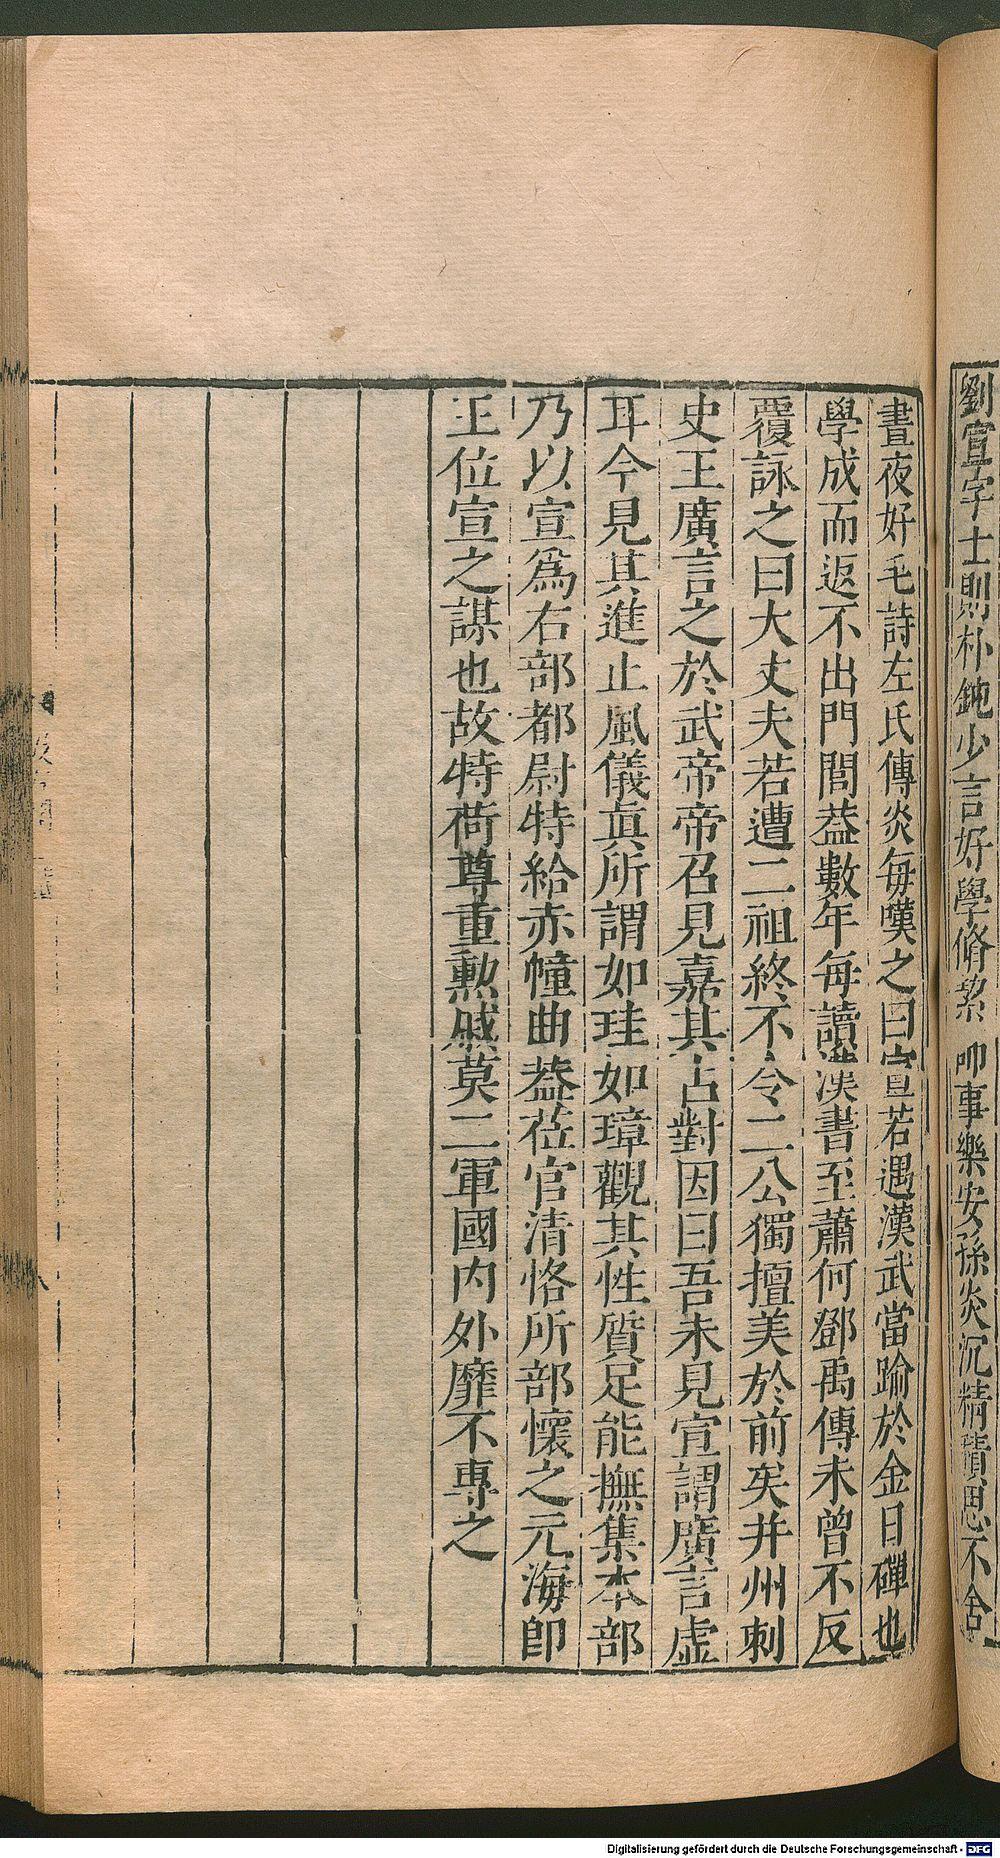 劉宣字士則朴鈍少言好學脩絜師事樂安孫炎沉精積思不舍
晝夜好毛詩左氏傳炎每嘆之曰宣若遇漢武當踰於金日磾也
學成而返不出門閭葢數年每讀漢書至蕭何鄧禹傳未曾不反
覆詠之曰大丈夫若遭二祖終不令二公獨擅美於前矣并州刺
史王廣言之於武帝帝召見嘉其占對因曰吾未見宣謂廣言虛
耳今見其進止風儀眞所謂如珪如璋觀其性質足能撫集本部
乃以宣爲右部都尉特給赤幢曲葢莅官清恪所部懷之元海卽
王位宣之謀也故特荷尊重勳戚莫二軍國內外靡不專之
Digitalisierung gefördert durch die Deutsche Forschungsgemeinschaft - DFG